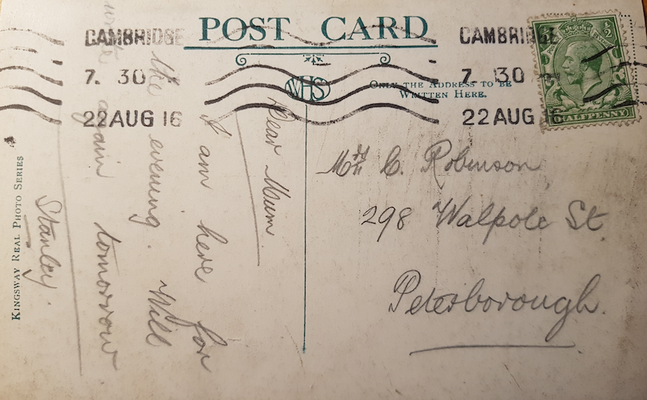 POST CARD
CAMBRIDGE
7. 30
22 AUG 16
CAMBRIDGE
7. 30
22 AUG 16
½
HALFPENNY
WHS
ONLY THE ADDRESS TO BE
WRITTEN HERE.
Dear Mum
I am here for
the evening. Will
write again tomorrow
Stanley.
Mrs C. Robinson
298 Walpole St.
Peterborough.
KINGSWAY REAL PHOTO SERIES